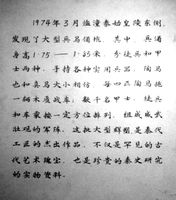 1974年3月临潼秦始皇陵东侧,
发现了大型兵马俑坑。其中,兵俑
身高1·75——1·85米,分徒兵和甲
士两种,手持各种实用兵器,陶马
和真马大小相仿,每四匹陶马拖
一辆木质战车。数千名甲士、徒兵
和车乘按一定方位排列,组成威武
壮观的军阵。这批大型群雕是秦代
工匠的杰出作品,不仅是罕见的古
代艺术瑰宝,也是珍贵的秦史研究
的实物资料。